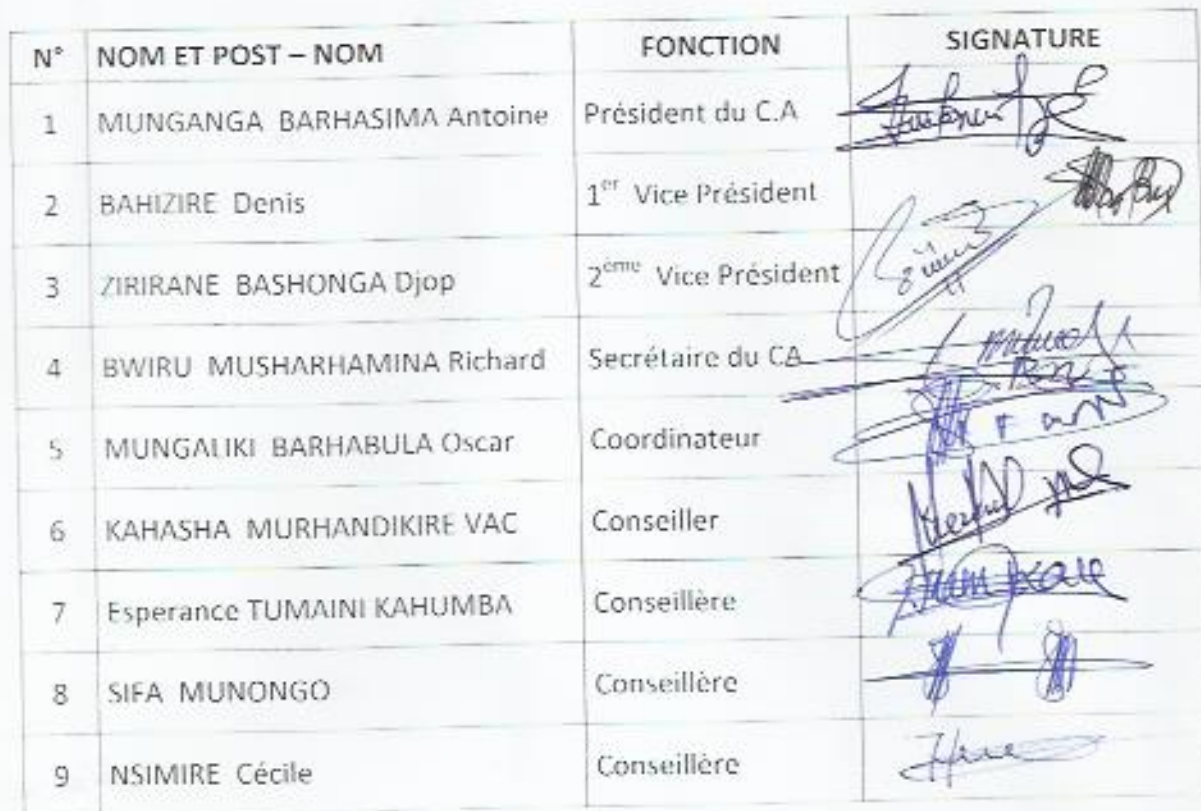 N° NOM ET POST – NOM FONCTION SIGNATURE
1 MUNGANGA BARHASIMA Antoine Président du C.A
2 BAHIZIRE Denis 1er Vice Président
3 ZIRIRANE BASHONGA Djop 2ème Vice Président
4 BWIRU MUSHARHAMINA Richard Secrétaire du CA
5 MUNGALIKI BARHABULA Oscar Coordinateur
6 KAHASHA MURHANDIKIRE VAC Conseiller
7 Esperance TUMAINI KAHUMBA Conseillère
8 SIFA MUNONGO Conseillère
9 NSIMIRE Cécile Conseillère